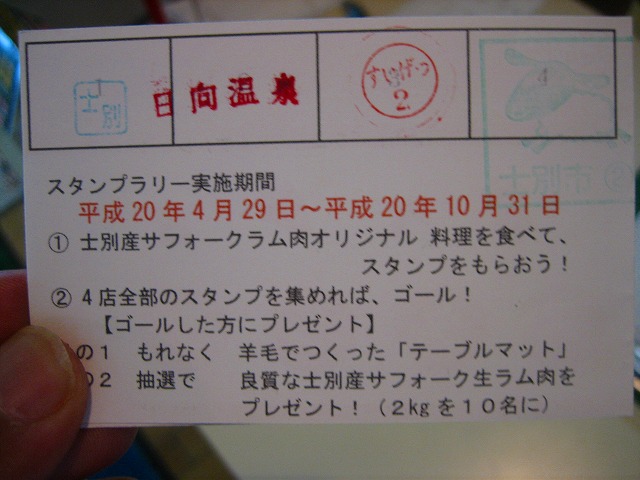 士別
日向温泉
2
4
士別市
スタンプラリー実施期間
平成20年4月29日～平成20年10月31日
① 士別産サフォークラム肉オリジナル 料理を食べて、
スタンプをもらおう！
② 4店全部のスタンプを集めれば、ゴール！
【ゴールした方にプレゼント】
の1 もれなく 羊毛でつくった「テーブルマット」
の2 抽選で 良質な士別産サフォーク生ラム肉を
プレゼント！（2kgを10名に）